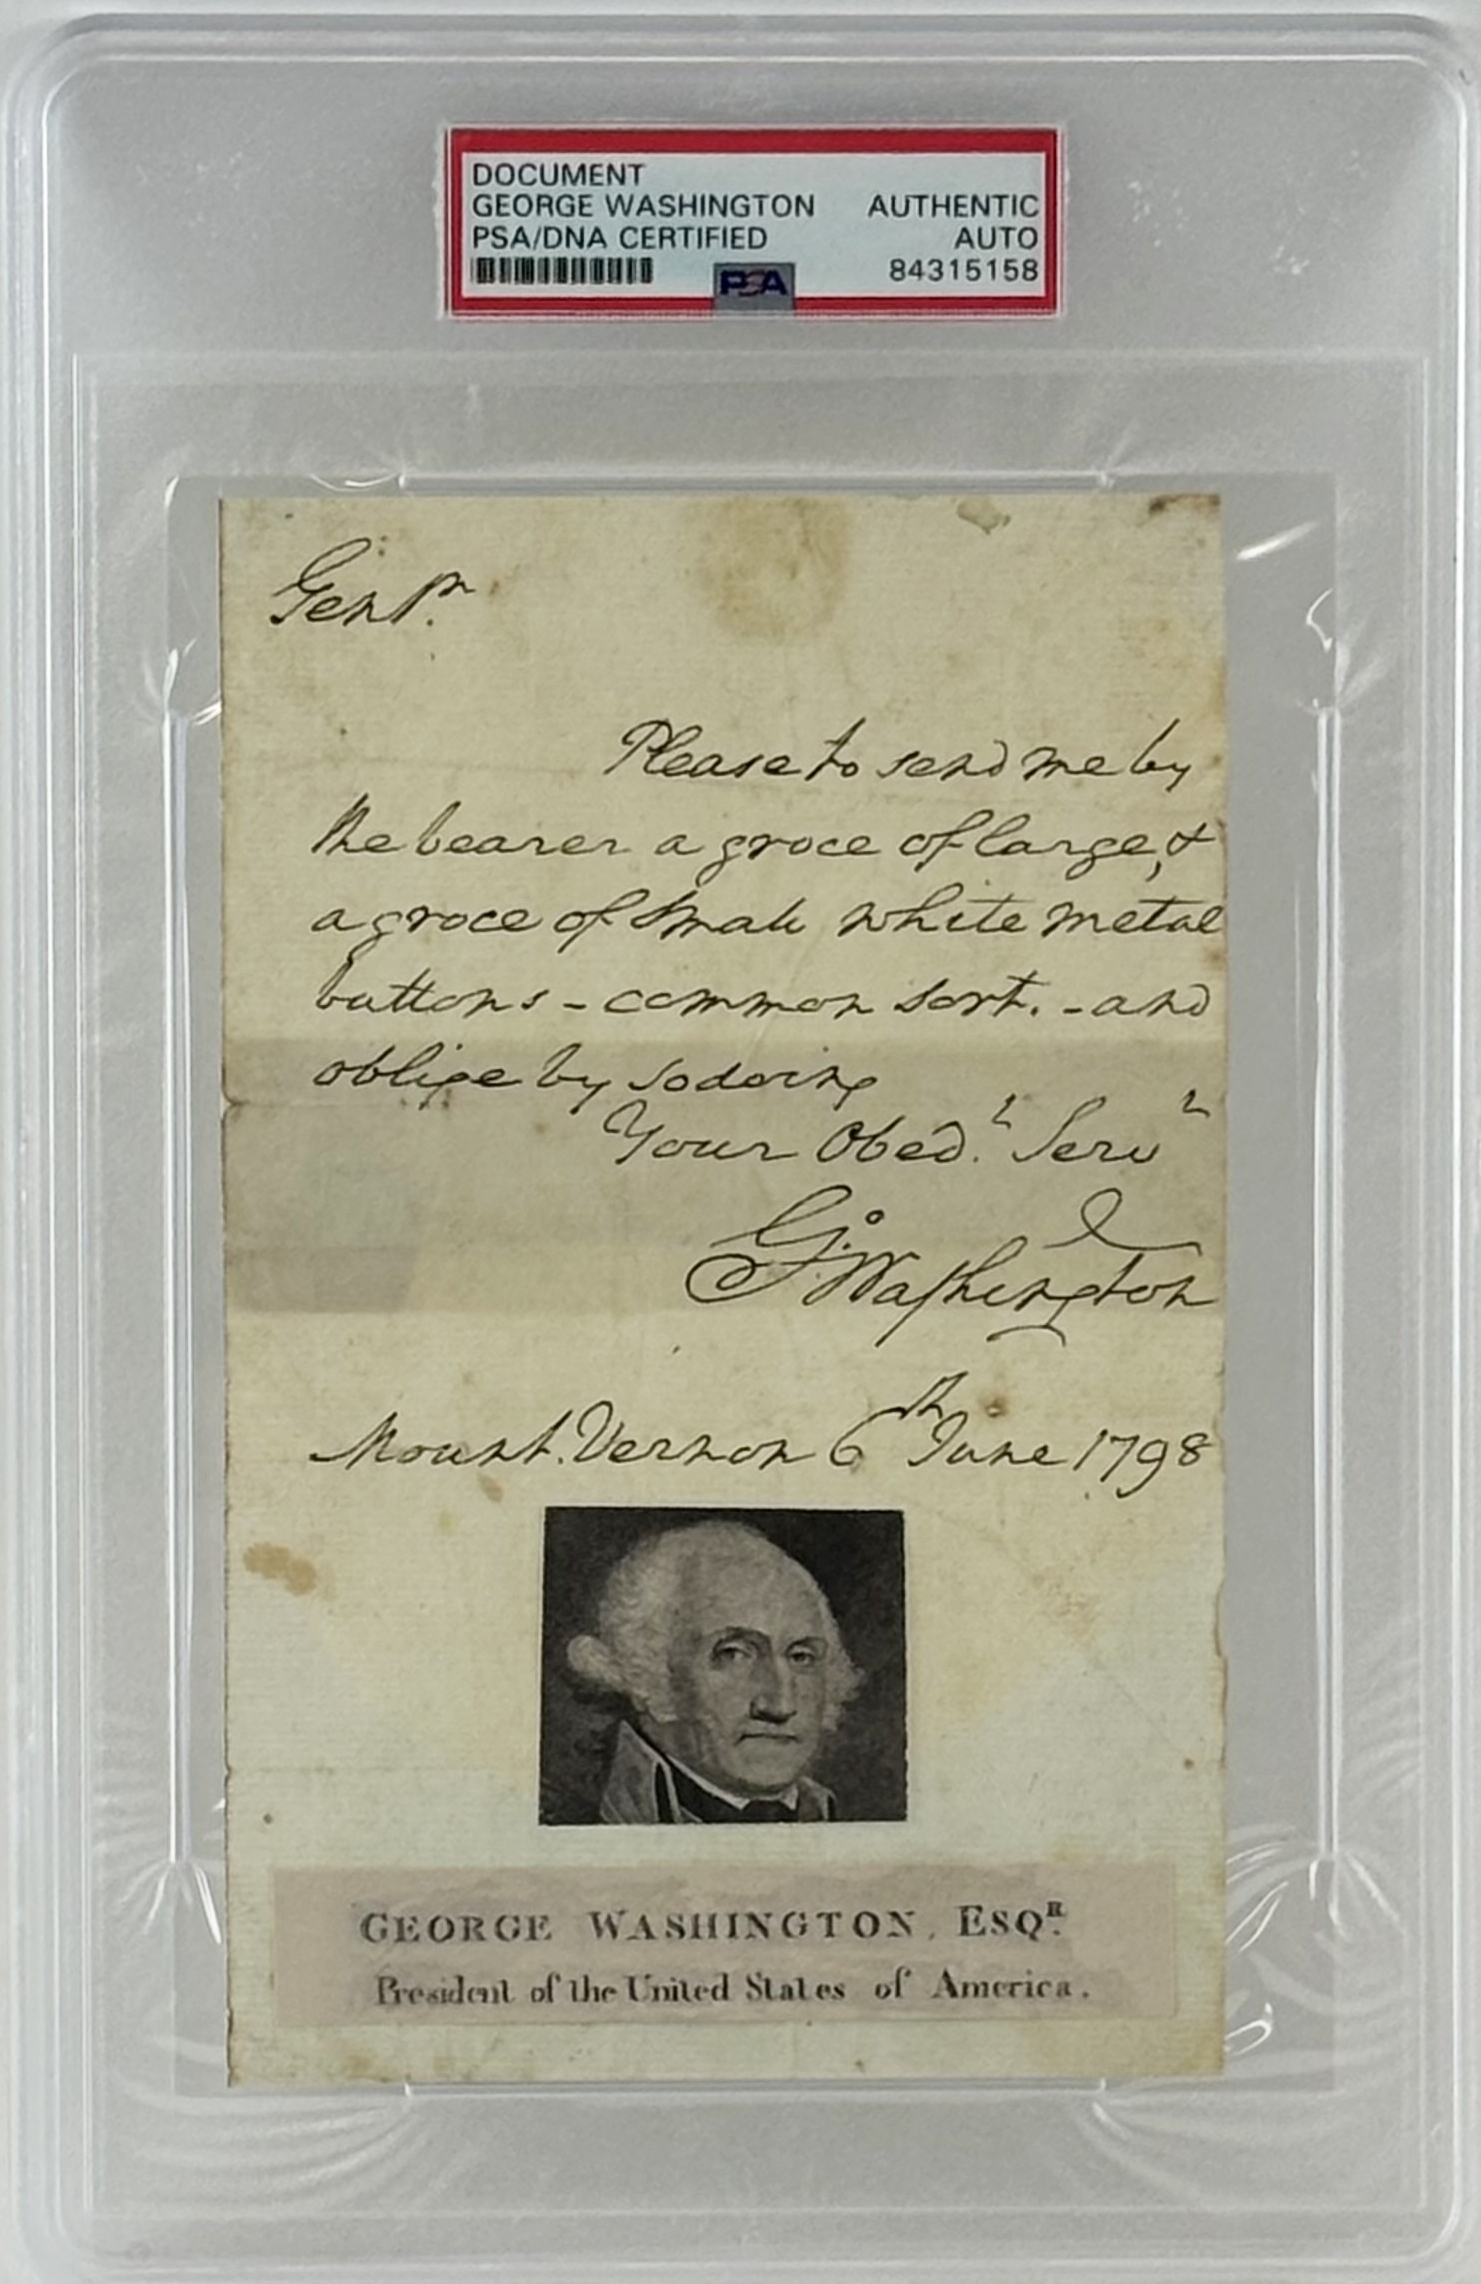 DOCUMENT
GEORGE WASHINGTON AUTHENTIC
PSA/DNA CERTIFIED AUTO
84315158
PSA
Gentn.
Please to send me by
the bearer a groce of large, &
a groce of small white metal
buttons - common sort. - and
oblige by so doing
Your Obed.t Servt
Go: Washington
Mount Vernon 6th June 1798
GEORGE WASHINGTON, ESQR.
President of the United States of America.